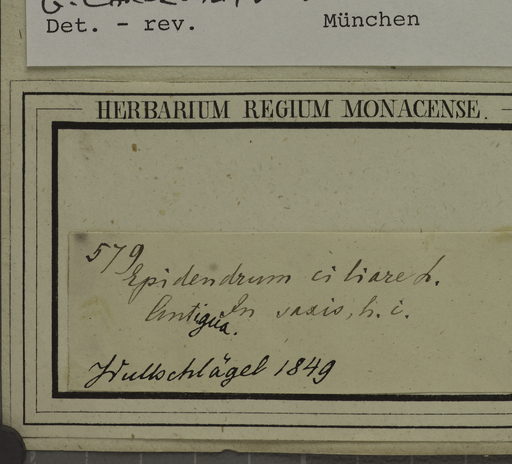 Det. - rev. München
HERBARIUM REGIUM MONACENSE.
579
Epidendrum ciliare L.
Antigua. In saxis, h. c.
Wullschlägel 1849